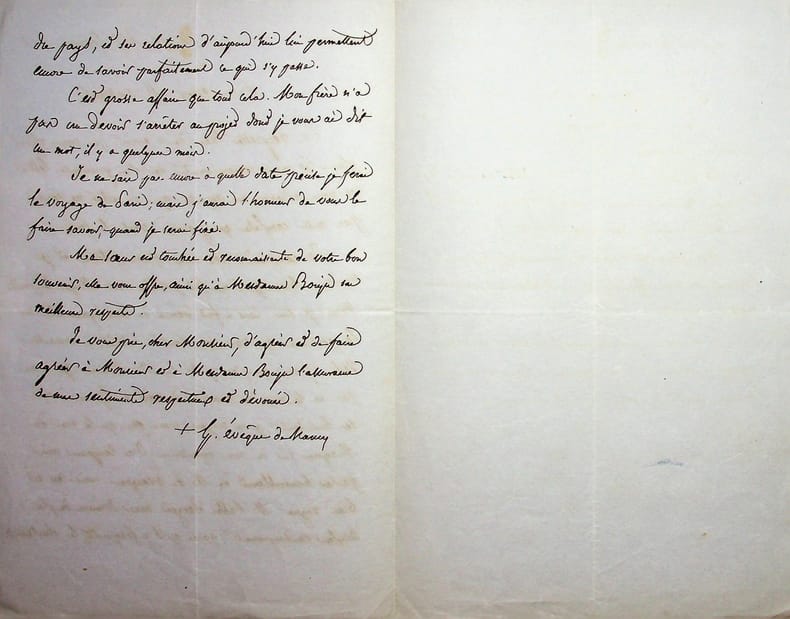 du pays, et ses relations d'aujourd'hui lui permettent
encore de savoir parfaitement ce qui s'y passe.
C'est grosse affaire que tout cela. Mon frère n'a
pas cru devoir s'arrêter au projet dont je vous ai dit
un mot, il y a quelques mois.
Je ne sais pas encore à quelle date précise je ferai
le voyage de Paris; mais j'aurai l'honneur de vous le
faire savoir, quand je serai fixé.
Ma sœur est touchée et reconnaissante de votre bon
souvenir, elle vous offre, ainsi qu'à Mesdames ses
meilleurs respects.
Je vous prie, cher Monsieur, d'agréer et de faire
agréer à Monsieur et à Mesdames l'assurance
de mes sentiments respectueux et dévoués.
+ G. évêque de Nancy